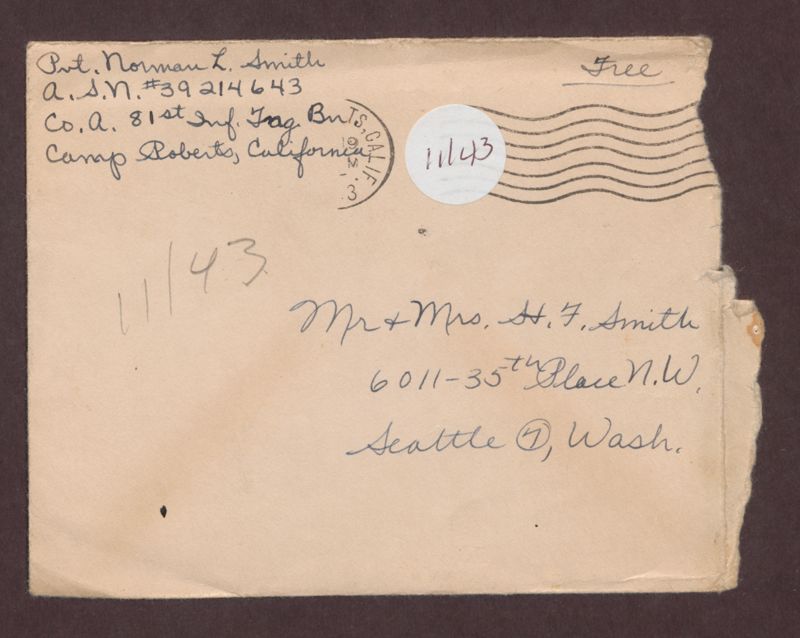 Pvt. Norman L. Smith
Free
A.S.N. #39214643
Co. A. 81st Inf. Tng. Bn
Camp Roberts, California
TS, CALIF.
3
11/43
11/43
Mr & Mrs. H. F. Smith
6011-35th Place N.W.
Seattle 7, Wash.